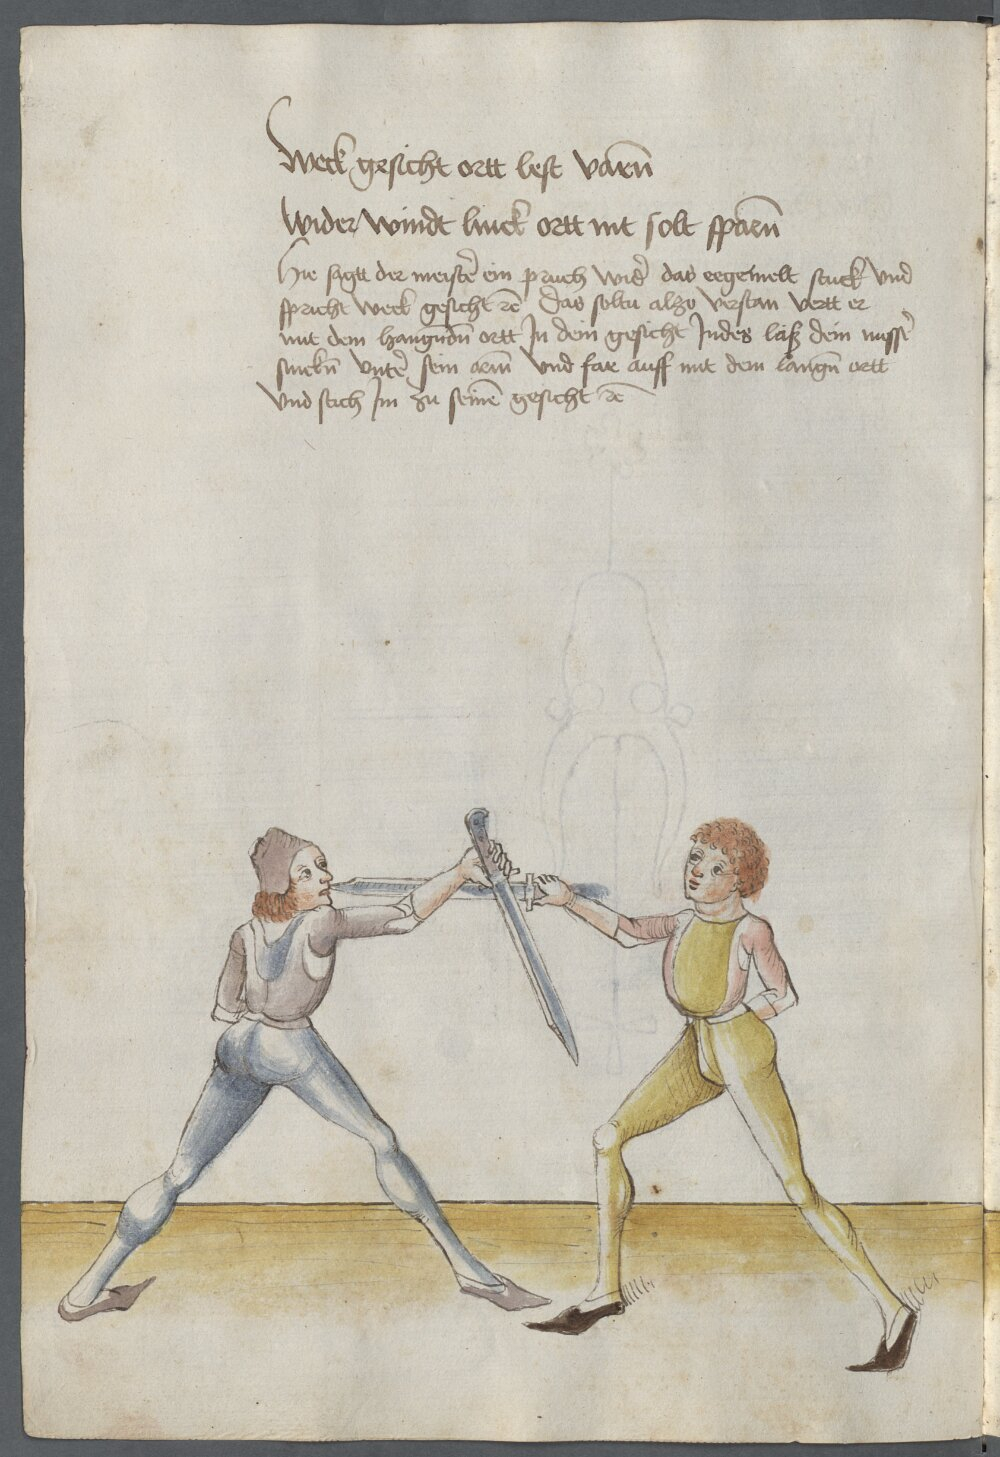 Weck gesicht ortt lest varn̄
Wider windt linck ortt nit solt sparn̄
Hie sagtt der meister̄ ein spruch wider̄ das egemelt stuck vnd
spricht weck gesicht ꝛc̄ Das soltu also verstan vertt er
mit dem hangndn̄ ortt Jn dein gesicht Jndes laß dein messer̄
sinckn̄ vnter̄ sein arm vnd far auff mit dem langn̄ ortt
vnd stich Jm zu seinē gesicht ꝛc̄